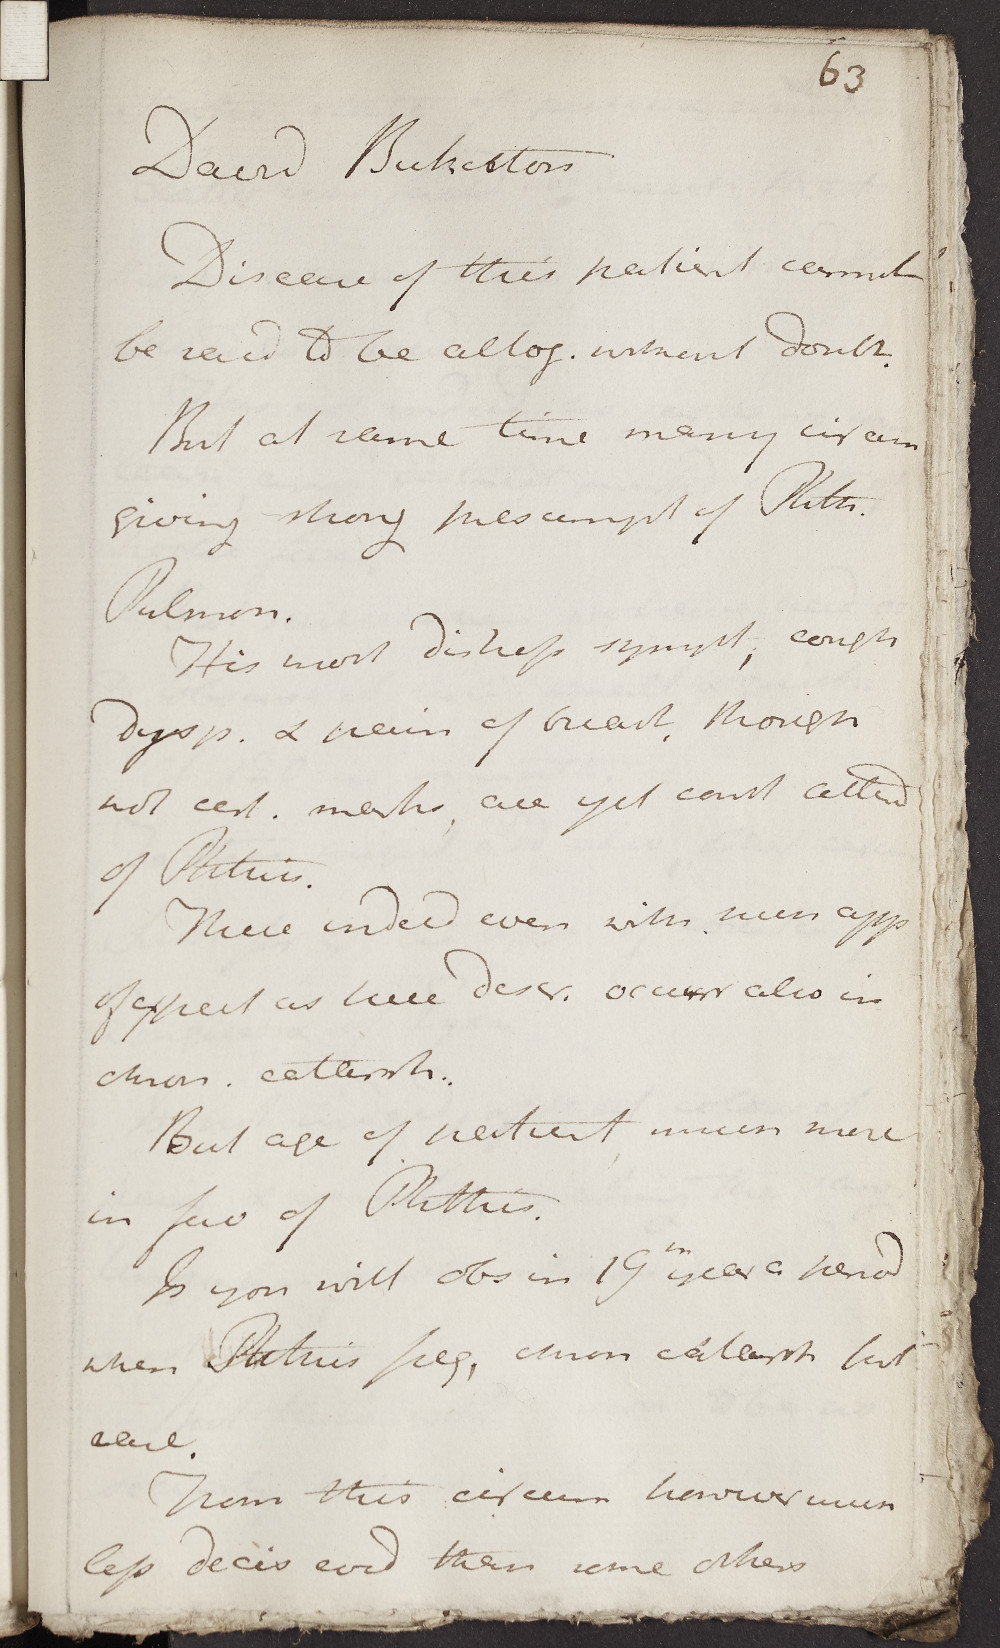 63
David
Disease of this patient cannot
be said to be altog. without doubt.
But at same time many circum
giving strong presumpt of Phth.
Pulmon.
His most distress sympt, cough
dysp. & pain of breast, though
not cert. marks, are yet const attend
of Phthisis.
These indeed even with such app
of expect as here descr. occurr also in
chron. catterrh.
But age of patient much more
in fav of Phthisis.
Is you will obs in 19th year a period
when Phthisis freq, chron catarrh but
rare.
From this circum however much
less decis evid than some others